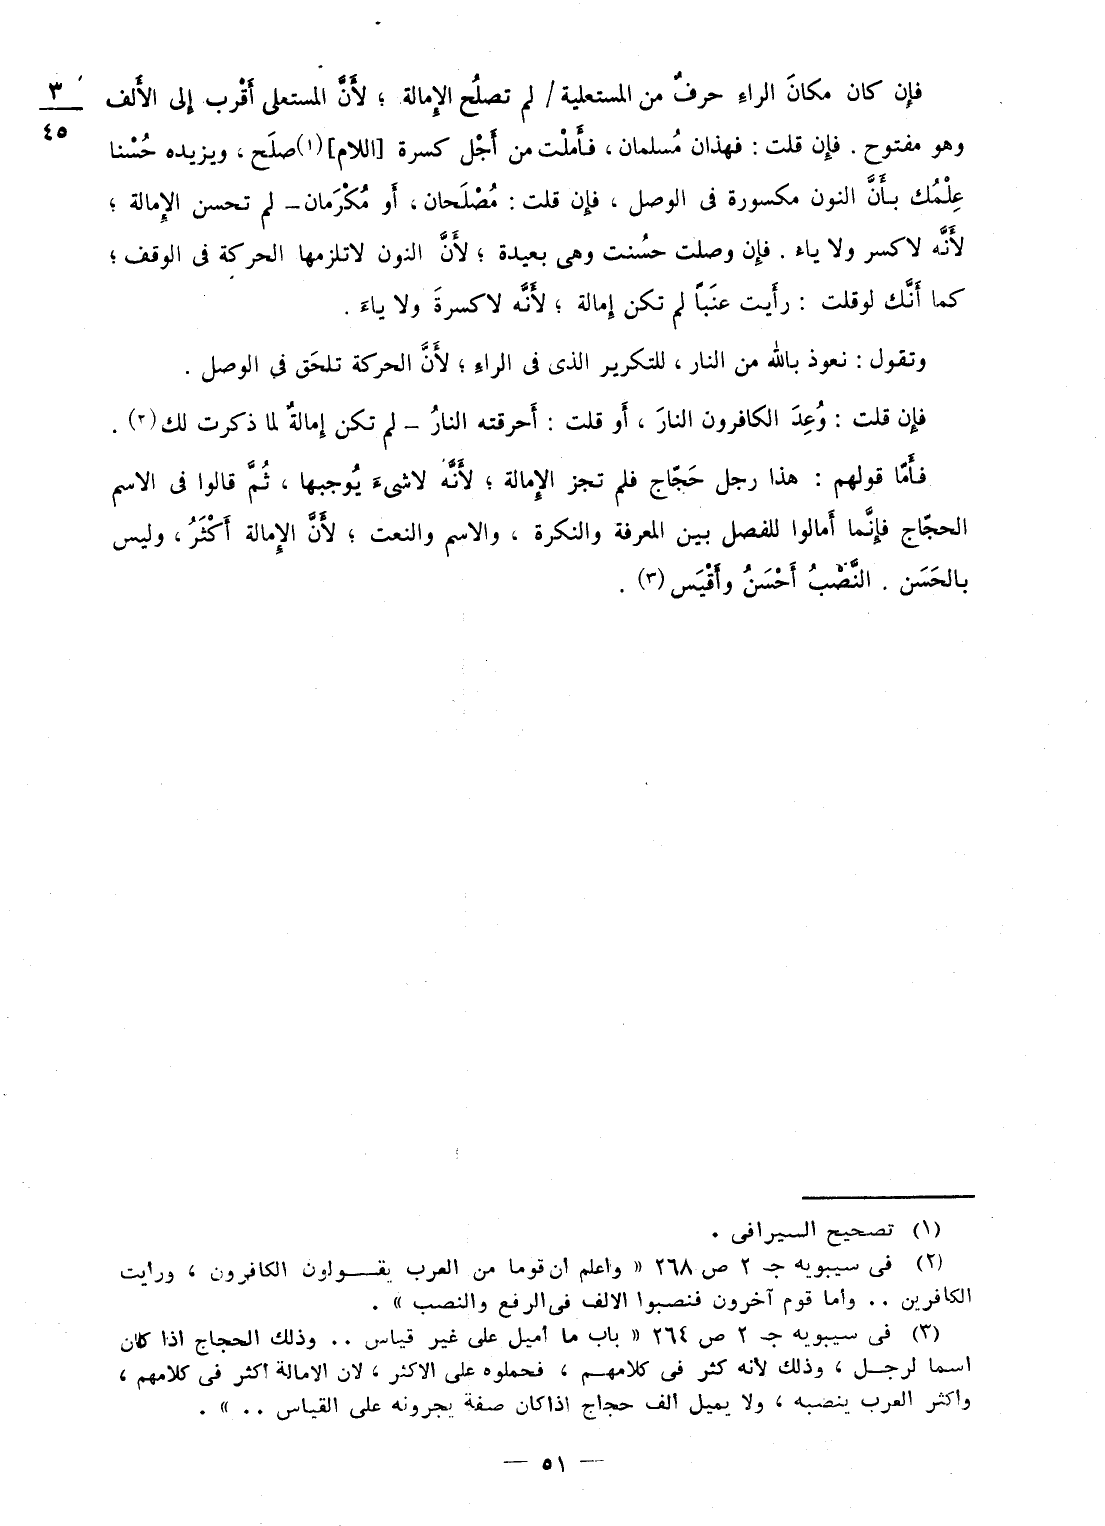 فإن كان مكانَ الراءِ حرفٌ من المستعلية / لم تصلُح الإمالة ؛ لأَنَّ المستعلى أَقْرب إلى الأَلف
٣
٤٥
وهو مفتوح . فإن قلت : فهذان مُسلمان ، فأَملْت من أَجْل كسرة [اللام](١)صلَح ، ويزيده حُسْنا
عِلْمُك بأَنَّ النون مكسورة فى الوصل ، فإن قلت : مُصْلَحان ، أَو مُكْرَمان – لم تحسن الإمالة ؛
لأَنَّه لاكسر ولا ياء . فإن وصلت حسُنت وهى بعيدة ؛ لأَنَّ النون لاتلزمها الحركة فى الوقف ؛
كما أَنَّك لوقلت : رأَيت عنَباً لم تكن إمالة ؛ لأَنَّه لاكسرةَ ولا ياءَ .
وتقول : نعوذ بالله من النار ، للتكرير الذى فى الراءِ ؛ لأَنَّ الحركة تلحَق فى الوصل .
فإن قلت : وُعِدَ الكافرون النارَ ، أَو قلت : أَحرقته النارُ – لم تكن إمالةٌ لما ذكرت لك(٢) .
فأَمّا قولهم : هذا رجل حَجّاج فلم تجز الإمالة ؛ لأَنَّه لاشىءَ يُوجبها ، ثُمَّ قالوا فى الاسم
الحجّاج فإنَّما أَمالوا للفصل بين المعرفة والنكرة ، والاسم والنعت ؛ لأَنَّ الإمالة أَكْثَرُ ، وليس
بالحَسَن . النَّصْبُ أَحْسَنُ وأَقْيَس(٣) .
(١) تصحيح السيرافى .
(٢) فى سيبويه جـ ٢ ص ٢٦٨ « واعلم أن قوما من العرب يقــولون الكافرون ، ورأيت
الكافرين .. وأما قوم آخرون فنصبوا الالف فى الرفع والنصب » .
(٣) فى سيبويه جـ ٢ ص ٢٦٤ « باب ما أميل على غير قياس .. وذلك الحجاج اذا كان
اسما لرجل ، وذلك لأنه كثر فى كلامهم ، فحملوه على الاكثر ، لان الامالة أكثر فى كلامهم ،
واكثر العرب ينصبه ، ولا يميل ألف حجاج اذاكان صفة يجرونه على القياس .. » .
— ٥١ —